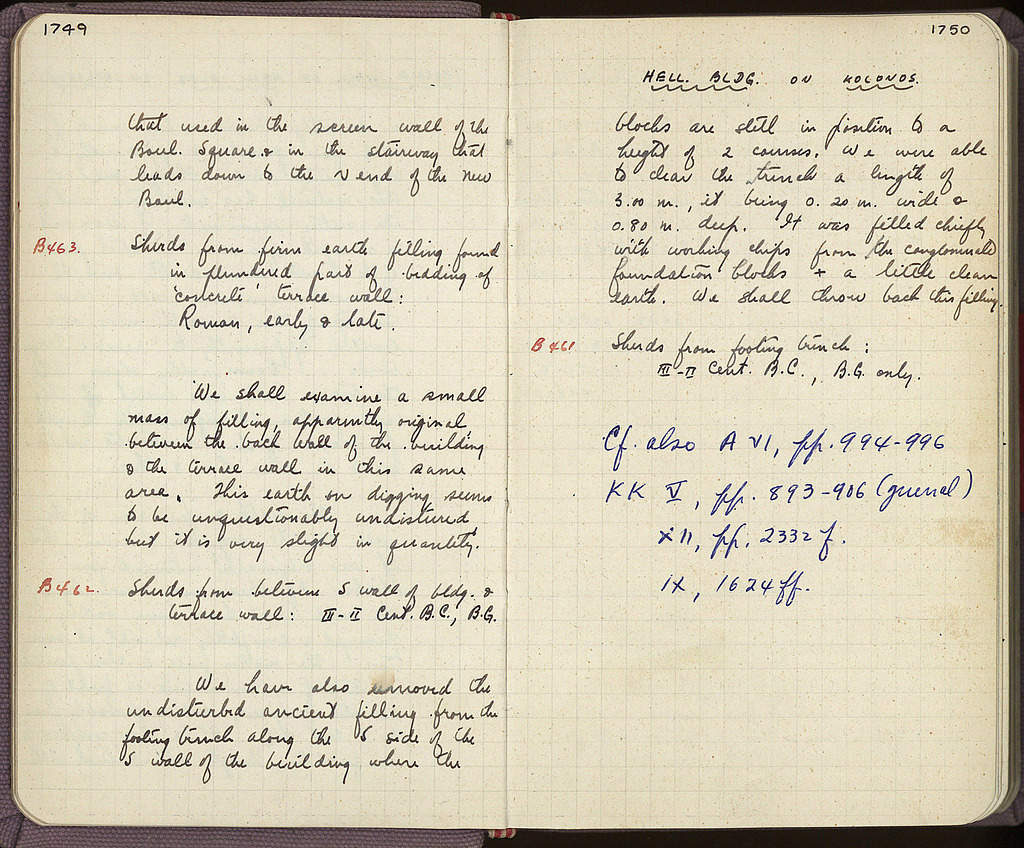 1749
that used in the screen wall of the
Boul. Square & in the stairway that
leads down to the N end of the New
Boul.
B463. Sherds from firm earth filling found
in plundered part of bedding of
'concrete' terrace wall:
Roman, early & late.
We shall examine a small
mass of filling, apparently original
between the back wall of the building
& the terrace wall in this same
area. This earth on digging seems
to be unquestionably undisturbed
but it is very slight in quantity.
B462. Sherds from between S wall of bldg. &
terrace wall: III-II Cent. B.C., B.G.
We have also removed the
undisturbed ancient filling from the
footing trench along the S side of the
S wall of the building where the
1750
HELL. BLDG. ON KOLONOS.
blocks are still in position to a
height of 2 courses. We were able
to clear the trench a length of
3.00 m., it being 0.20 m. wide &
0.80 m. deep. It was filled chiefly
with working chips from the conglomerate
foundation blocks + a little clean
earth. We shall throw back this filling.
B461 Sherds from footing trench:
III-II Cent. B.C., B.G. only.
Cf. also A VI, pp. 994-996
KK V, pp. 893-906 (general)
XII, pp. 2332 f.
IX, 1624 ff.